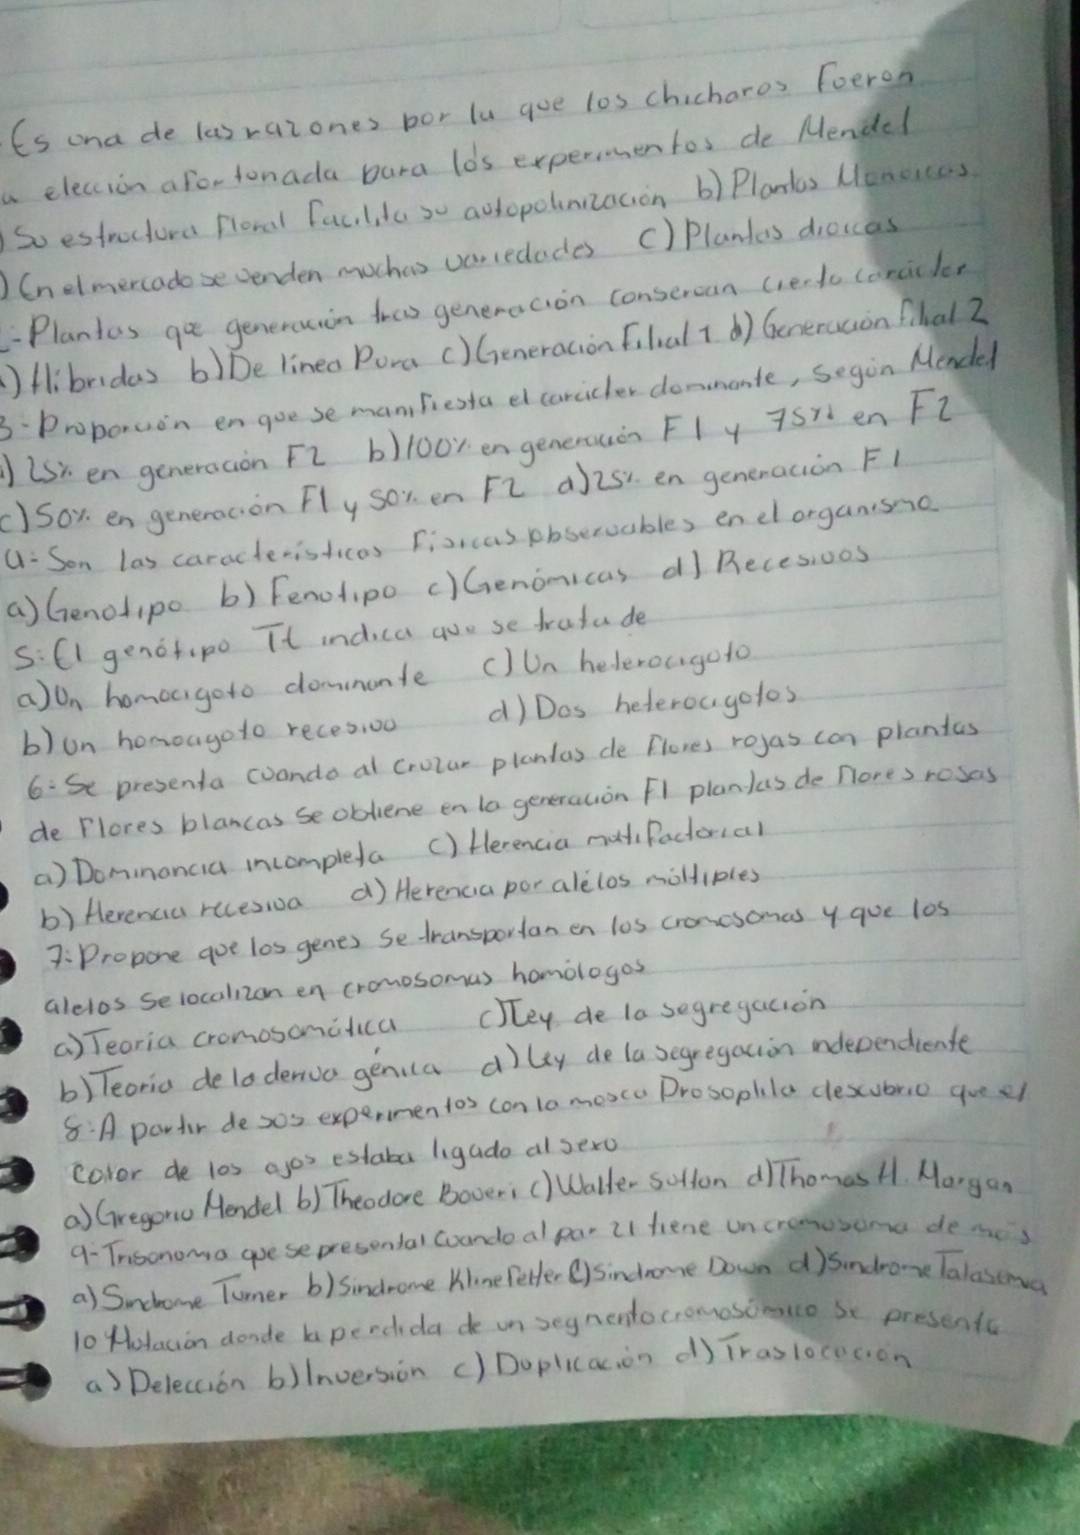 Es una de las razones por la que los chicharos Fueron
elección afortunada para los experimentos de Mendel
Su estructura floral Facilita su autopolinización b) Plantas Monoicas
) En el mercado se venden muchas variedades c) Plantas dioicas
- Plantas que generación tras generación conservan cierto carácter
) Híbridas b) De linea Pura c) Generación Filial 1 d) Generación filial 2
3- Proporción en que se manifiesta el carácter dominante, según Mendel
) 25% en generación F2 b) 100% en generación F1 y 75% en F2
c) 50% en generación F1 y 50% en F2 d) 25% en generación F1
4- Son las características Fisicas observables en el organismo
a) Genotipo b) Fenotipo c) Genómicas d) Recesivos
5: El genótipo Tt indica que se trata de
a) Un homocigoto dominante c) Un heterocigoto
b) Un homocigoto recesivo d) Dos heterocigotos
6: Se presenta cuando al cruzar plantas de flores rojas con plantas
de Flores blancas se obtiene en la generación F1 plantas de flores rosas
a) Dominancia incompleta c) Herencia multifactorial
b) Herencia recesiva d) Herencia por alélos múltiples
7: Propone que los genes se transportan en los cromosomas y que los
alelos se localizan en cromosomas homólogos
a) Teoría cromosomática c) Ley de la segregación
b) Teoria de la deriva génica d) Ley de la segregación independiente
8: A partir de sus experimentos con la mosca Drosophila descubrio que el
color de los ojos estaba ligado al sexo
a) Gregorio Mendel b) Theodore Boveri c) Walter Sutton d) Thomas H. Morgan
9- Trisonomia que se presental cuando al par 21 tiene un cromosoma de más
a) Sindrome Turner b) Sindrome Klinefelter c) Sindrome Down d) Sindrome Talasemia
10 Mutación donde la perdida de un segmento cromosómico se presenta
a) Delección b) Inversión c) Duplicación d) Traslocación